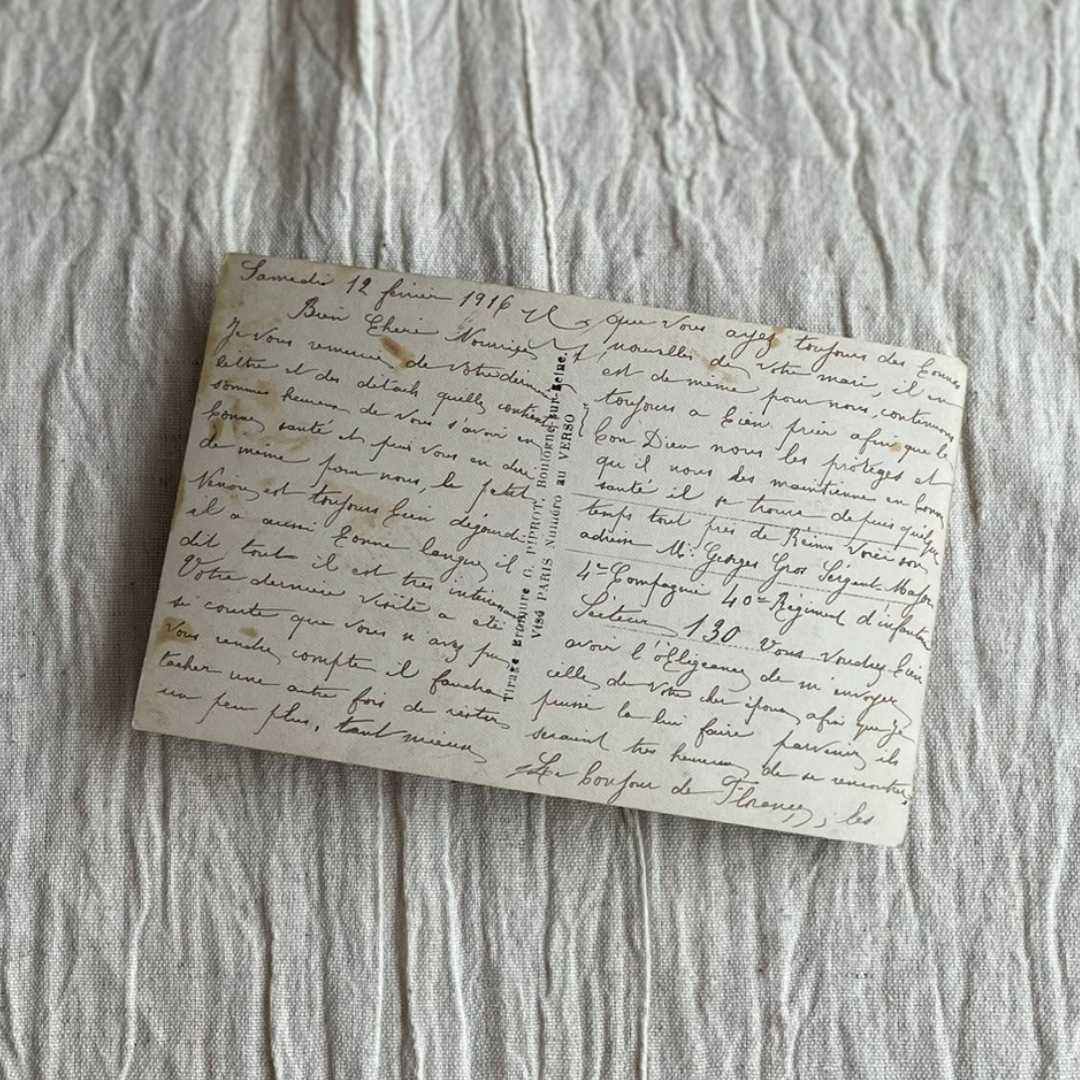 Samedi 12 février 1916
Bien Chère Nourrice
Je vous remercie de votre dernière
lettre et des détails quelle contient
sommes heureux de vous savoir en
bonne santé et puis vous en dire
de même pour nous, le petit
est toujours bien dégourdi
il a aussi bonne langue, il
dit tout il est très intéressant
Votre dernière visite a été
si courte que vous n'avez pu
vous rendre compte il faudra
tacher une autre fois de rester
un peu plus, tant mieux
que vous ayez toujours des bonnes
nouvelles de votre mari, il en
est de même pour nous, continuons
toujours a bien prier afin que le
bon Dieu nous les protèges et
qu'il nous les maintienne en bonne
santé il se trouve depuis quelque
temps tout près de Reims Voici son
adresse Mr Georges Gros Sergent-Major
4e Compagnie 40e Régiment d'infanterie
Secteur 130 Vous voudrez bien
avoir l'obligeance de m'envoyer
celle de votre cher époux, afin que je
puisse la lui faire parvenir, ils
seraient très heureux de se rencontrer,
Le bonjour de, les
Tirage Bromure G. PIPROT, Boulogne-sur-Seine.
Visé PARIS Numéro au VERSO